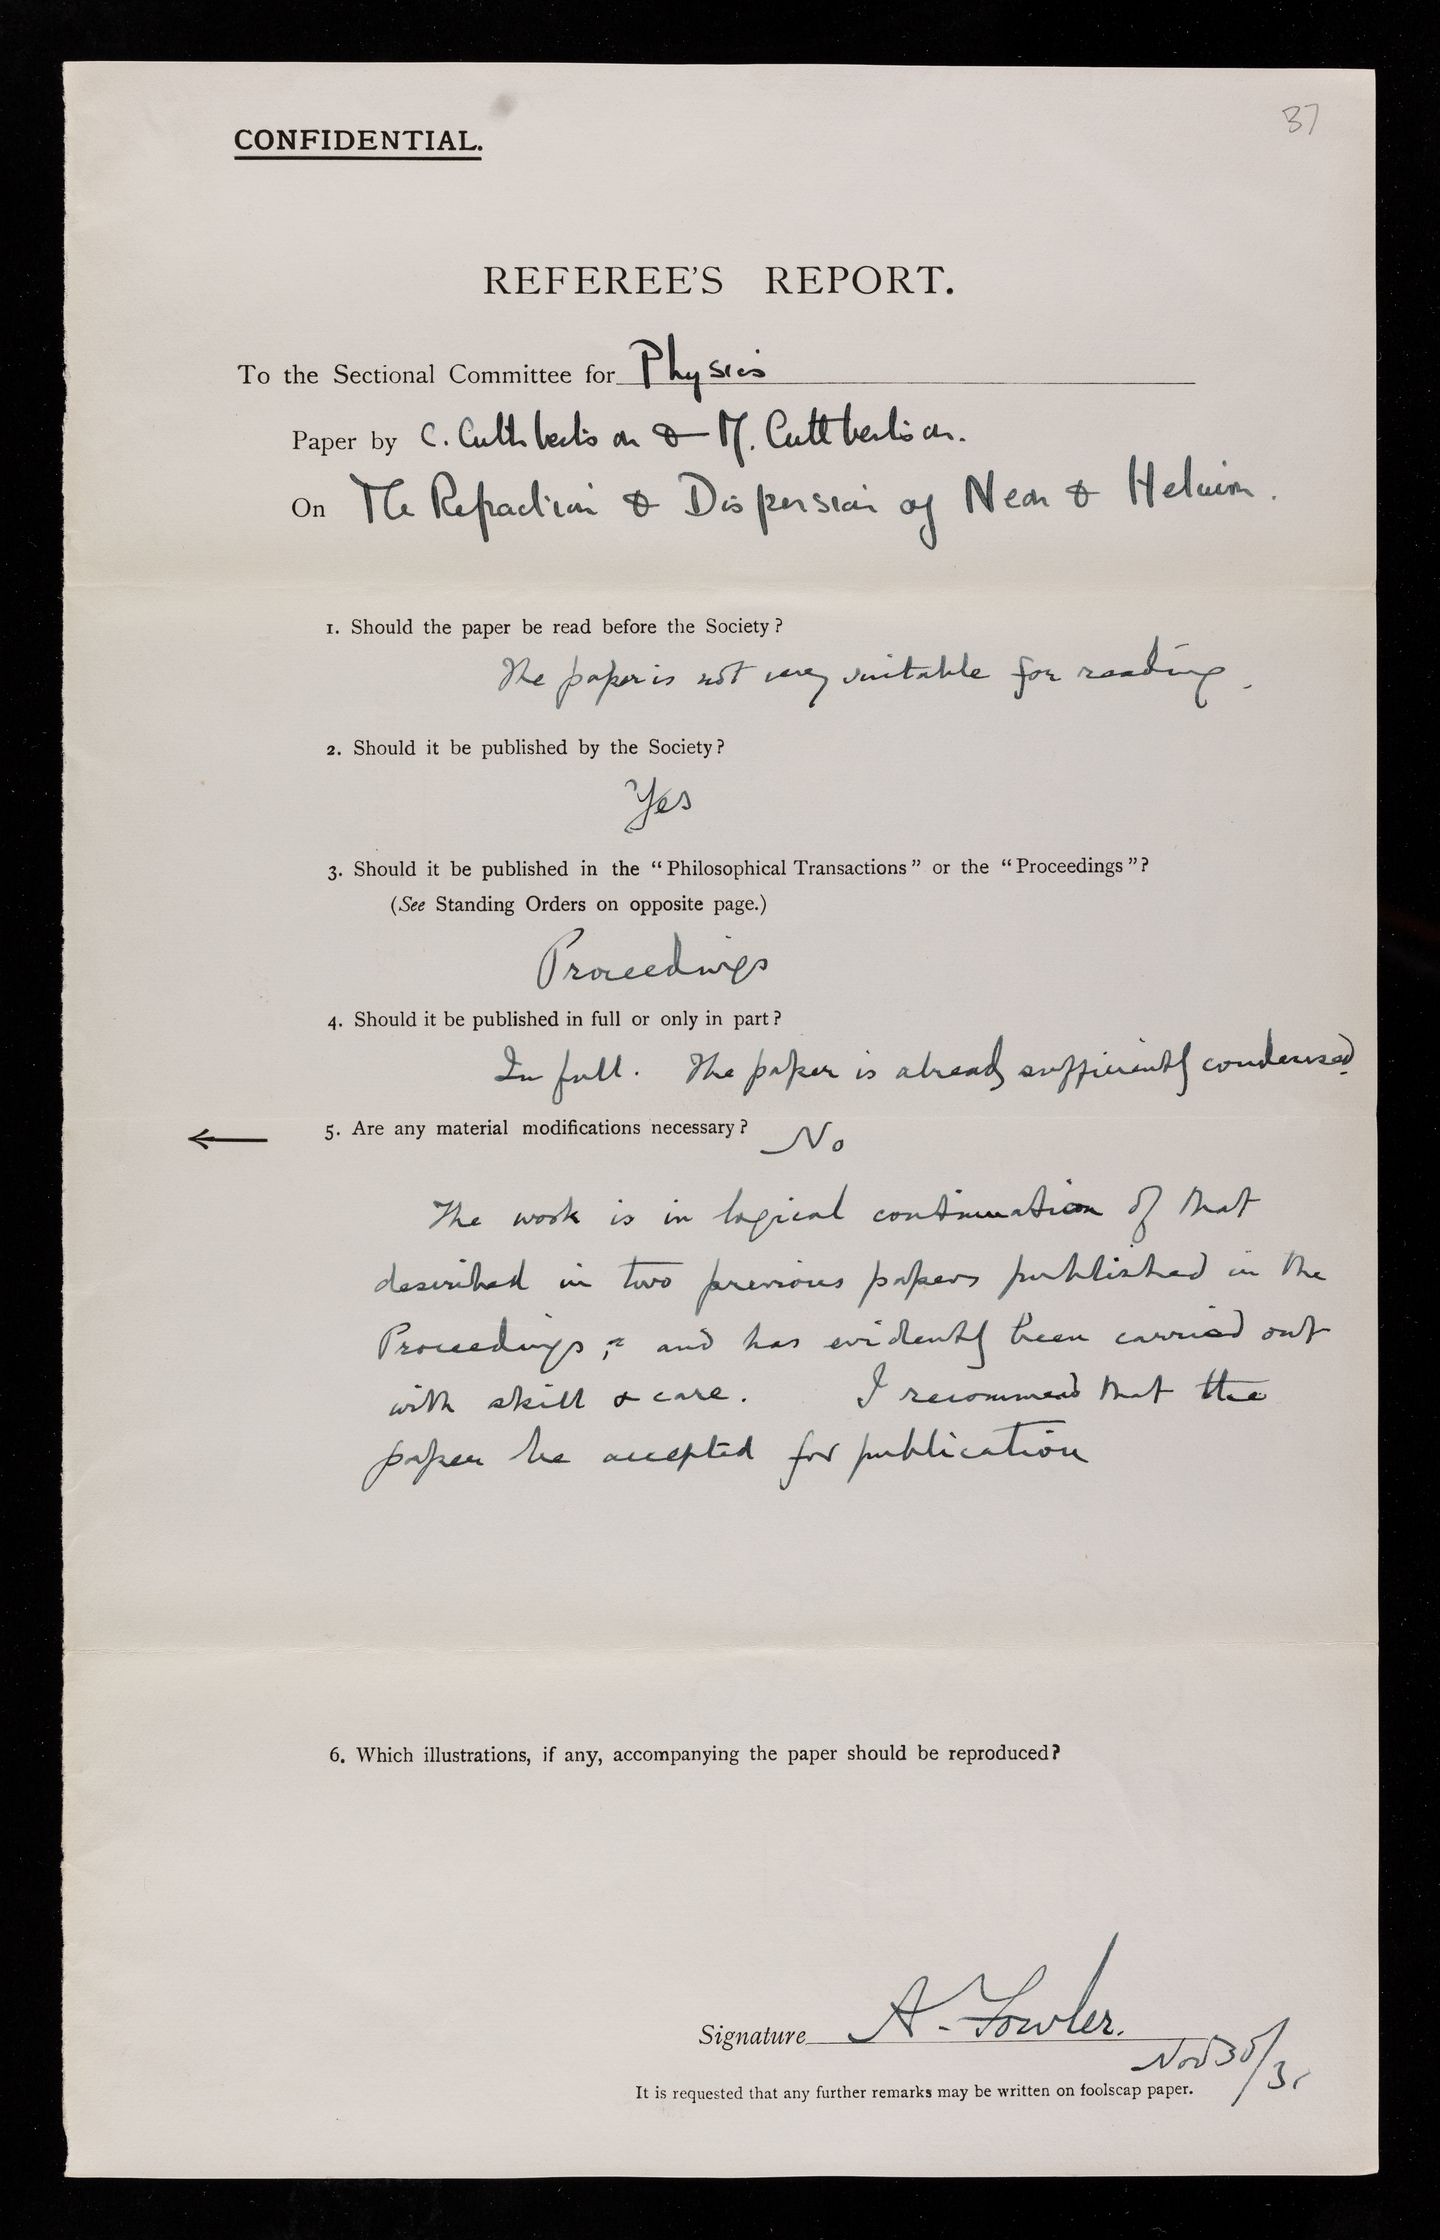 37
CONFIDENTIAL.
REFEREE'S REPORT.
To the Sectional Committee for Physics
Paper by C. Cuthbertson & M. Cuthbertson.
On The Refraction & Dispersion of Neon & Helium.
1. Should the paper be read before the Society?
The paper is not very suitable for reading.
2. Should it be published by the Society?
Yes
3. Should it be published in the "Philosophical Transactions" or the "Proceedings"?
(See Standing Orders on opposite page.)
Proceedings
4. Should it be published in full or only in part?
In full. The paper is already sufficiently condensed.
5. Are any material modifications necessary? No
The work is in logical continuation of that
described in two previous papers published in the
Proceedings, and has evidently been carried out
with skill & care. I recommend that the
paper be accepted for publication
6. Which illustrations, if any, accompanying the paper should be reproduced?
Signature A. Fowler.
Nov 30/31
It is requested that any further remarks may be written on foolscap paper.